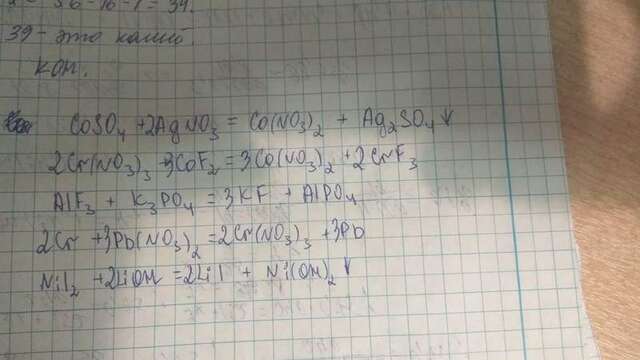 = 56 - 16 - 1 = 39.
39 - это калий
KOH.
CoSO₄ + 2AgNO₃ = Co(NO₃)₂ + Ag₂SO₄↓
2Cr(NO₃)₃ + 3CoF₂ = 3Co(NO₃)₂ + 2CrF₃
AlF₃ + K₃PO₄ = 3KF + AlPO₄
2Cr + 3Pb(NO₃)₂ = 2Cr(NO₃)₃ + 3Pb
NiI₂ + 2LiOH = 2LiI + Ni(OH)₂↓